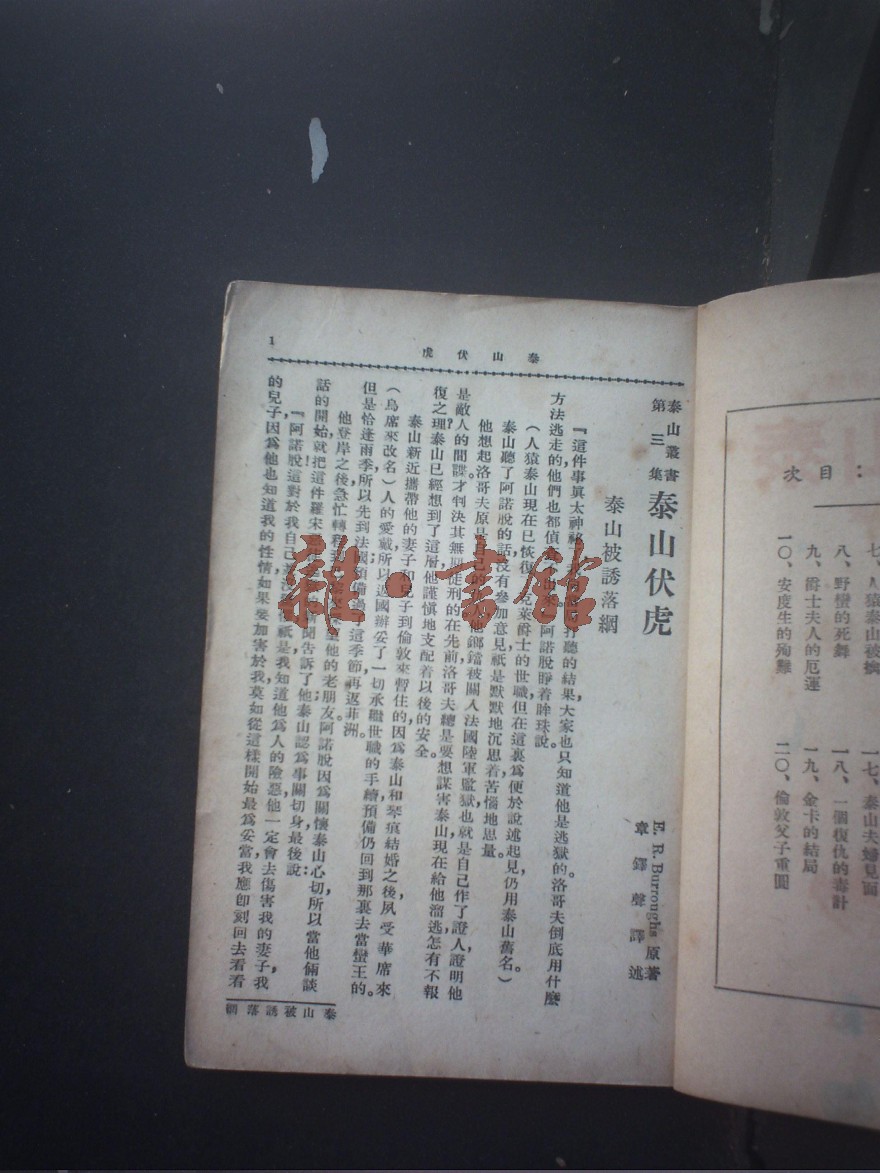 次目：
七、人猿泰山被擒
八、野蠻的死舞
九、爵士夫人的厄運
一〇、安度生的殉難
一七、泰山夫婦見面
一八、一個復仇的毒計
一九、金卡的結局
二〇、倫敦父子重圓
泰山伏虎
1
泰山叢書
第三集
泰山伏虎
E. R. Burroughs 原著
章鐸聲譯述
泰山被誘落網
『這件事眞太神祕打聽的結果，大家也只知道他是逃獄的洛哥夫倒底用什麼
方法逃走的他們也都偵阿諾脫睜着眸珠說。
（人猿泰山現在已恢復克萊爵士的世職但在這裏爲便於說述起見仍用泰山舊名。）
泰山聽了阿諾脫的話沒有參加意見祇是默默地沉思着苦惱地思量。
他想起洛哥夫原是自己的他鎯鐺被關入法國陸軍監獄也就是自己作了證人證明他
是敵人的間諜才判決其無期徒刑的在先前洛哥夫總是要想謀害泰山現在給他溜逃怎有不報
復之理？泰山已經想到了這層他謹愼地支配着以後的安全。
泰山新近攜帶他的妻子和兒子到倫敦來暫住的因爲泰山和琴痕結婚之後夙受華席來
（烏席來改名）人的愛戴所以返國辦妥了一切承繼世職的手續預備仍回到那裏去當蠻王的。
但是恰逢雨季所以先到法國預備過了這季節再返菲洲。
他登岸之後急忙轉他的老朋友阿諾脫因爲關懷泰山心切所以當他倆談
話的開始就把這件羅宋聞告訴了他泰山認爲事關切身最後說：
『阿諾脫這對於我自己祇是我知道他爲人的險惡他一定會去傷害我的妻子，我
的兒子因爲他也知道我的性情如果要加害於我莫如從這樣開始最爲妥當我應卽刻回去看看
泰山被誘落網
雜·書館